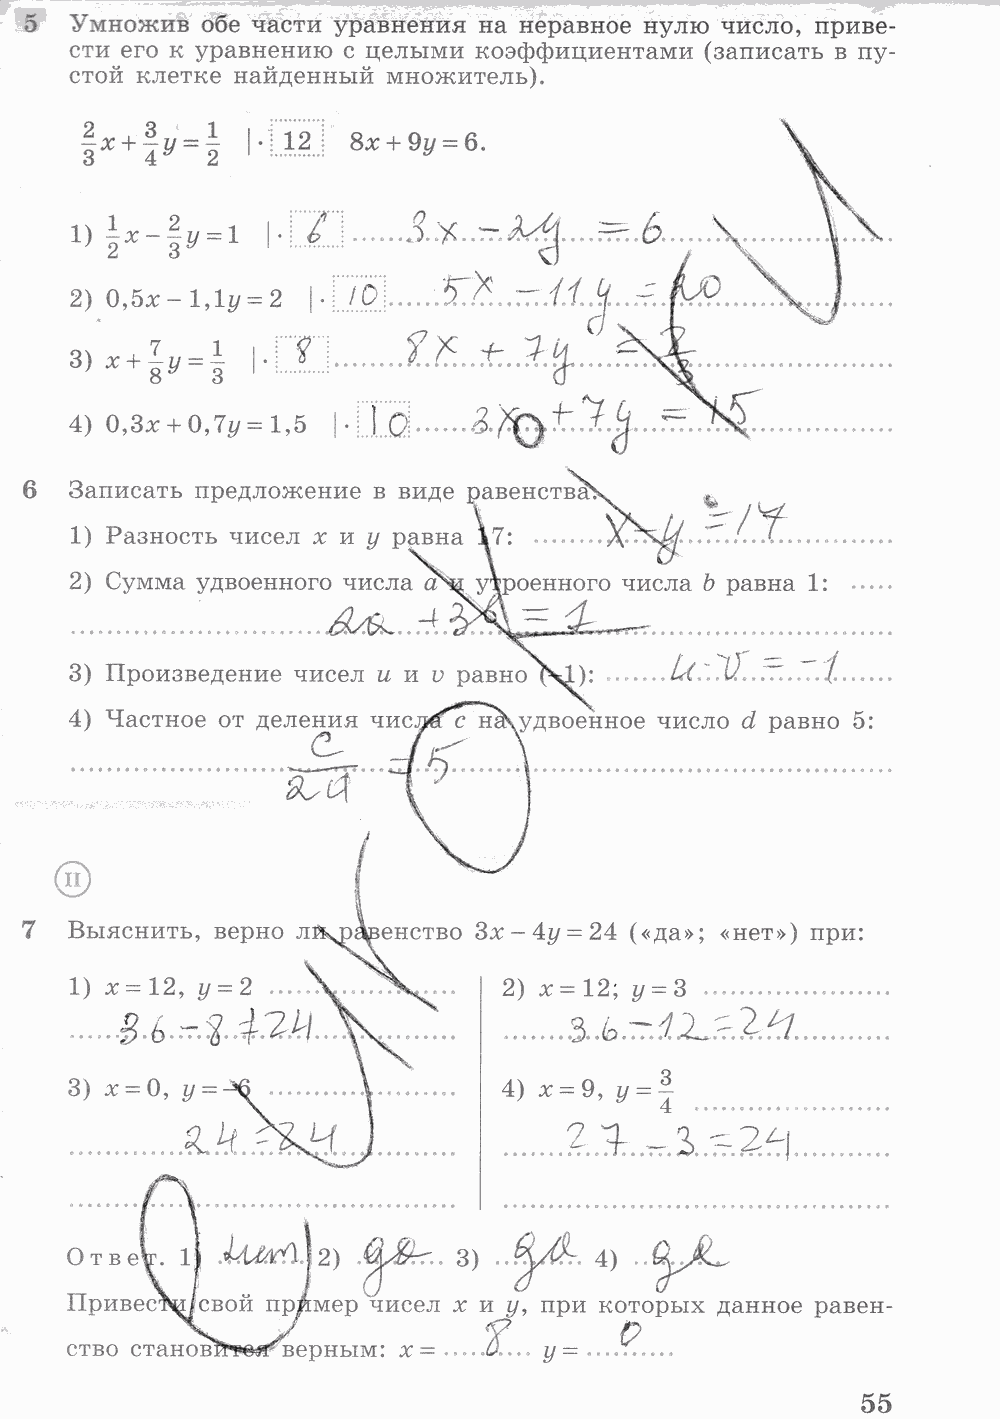 5 Умножив обе части уравнения на неравное нулю число, приве-
сти его к уравнению с целыми коэффициентами (записать в пу-
стой клетке найденный множитель).
2/3 x + 3/4 y = 1/2 | · 12 8x + 9y = 6.
1) 1/2 x − 2/3 y = 1 | · 6 3x − 2y = 6
2) 0,5x − 1,1y = 2 | · 10 5x − 11y = 20
3) x + 7/8 y = 1/3 | · 8 8x + 7y = 8/3
4) 0,3x + 0,7y = 1,5 | · 10 3x + 7y = 15
6 Записать предложение в виде равенства:
1) Разность чисел x и y равна 17: x − y = 17
2) Сумма удвоенного числа a и утроенного числа b равна 1:
2a + 3b = 1
3) Произведение чисел u и v равно (−1): u · v = −1
4) Частное от деления числа c на удвоенное число d равно 5:
c/2d = 5
II
7 Выяснить, верно ли равенство 3x − 4y = 24 («да»; «нет») при:
1) x = 12, y = 2
36 − 8 ≠ 24
2) x = 12; y = 3
36 − 12 = 24
3) x = 0, y = −6
24 = 24
4) x = 9, y = 3/4
27 − 3 = 24
Ответ. 1) нет 2) да 3) да 4) да
Привести свой пример чисел x и y, при которых данное равен-
ство становится верным: x = 8 y = 0
55